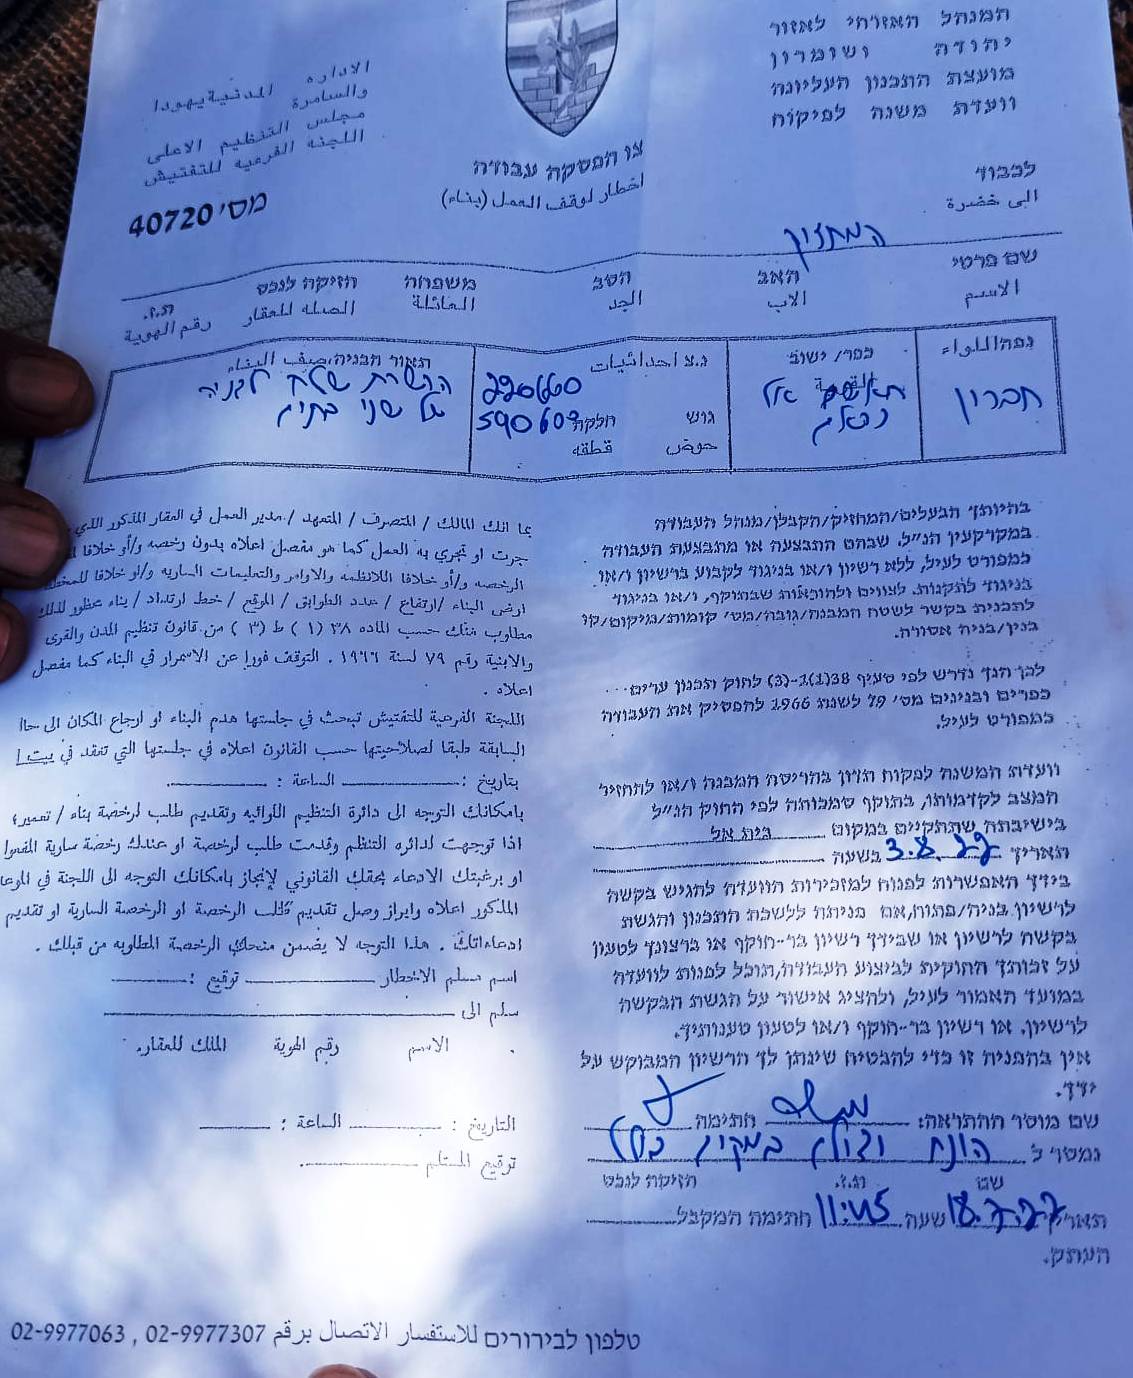 המנהל האזרחי לאזור
יהודה ושומרון
מועצת התכנון העליונה
וועדת משנה לפיקוח
الاداره المدنية يهودا
والسامرة
مجلس التنظيم الاعلى
اللجنه الفرعيه للتفتيش
מס' 40720
צו הפסקת עבודה
اخطار لوقف العمل (بناء)
לכבוד
الى خضرة
המחזיק
שם פרטי האב הסב משפחה הזיקה לנכס ת.ז.
الاسم الاب الجد العائلة الصله للعقار رقم الهوية
נפה/اللواء
חברון
כפר/ ישוב
נ.צ احداثيات
220660
590603
גוש חלקה
حوض قطعه
תאור הבניה،صيف البناء
הכשרת שטח לבניה
של שני בתים
בהיותך הבעלים/המחזיק/הקבלן/מנהל העבודה
במקרקעין הנ"ל, שבהם התבצעה או מתבצעת העבודה
כמפורט לעיל, ללא רשיון ו/או בניגוד לקבוע ברשיון ו/או
בניגוד לתקנות, לצווים ולהוראות שבתוקף, ו/או בניגוד
לתכנית בקשר לשטח המבנה/גובה/מס' קומות/מיקום/קו
בנין/בניה אסורה.
לכן הנך נדרש לפי סעיף 38(1)-2-(3) לחוק תכנון ערים...
כפרים ובנינים מס' 79 לשנת 1966 להפסיק את העבודה
כמפורט לעיל.
וועדת המשנה לפקוח תדון בהריסת המבנה ו/או להחזיר
המצב לקדמותו, בתוקף סמכותה לפי החוק הנ"ל
בישיבתה שתתקיים במקום בית אל
תאריך 3.8.22 בשעה
בידך האפשרות לפנות למזכירות הוועדה להגיש בקשה
לרשיון בניה/פתוח, אם פניתה ללשכת התכנון והגשת
בקשה לרשיון או שבידך רשיון בר-תוקף או ברצונך לטעון
על זכותך החוקית לביצוע העבודה, תוכל לפנות לוועדה
במועד האמור לעיל, ולהציג אישור על הגשת הבקשה
לרשיון, או רשיון בר-תוקף ו/או לטעון טענותיך.
אין בהפניה זו כדי להבטיח שינתן לך הרשיון המבוקש על
ידך.
שם מוסר ההתראה: חתימה
נמסר ל הונח וצולם במקום
שם ת.ז. הזיקה לנכס
תאריך 18.7.22 שעה 11:45 חתימה המקבל
העתק.
بما انك المالك / المتصرف / المتعهد / مدير العمل في العقار المذكور الذي
جرت او تجري به العمل كما هو مفصل اعلاه بدون رخصه و/أو خلافا
الرخصه و/أو خلافا للانظمه والاوامر والتعليمات الساريه و/او خلافا للمخطط
ارضى البناء /ارتفاع / عدد الطوابق / الموقع / خط ارتداد / بناء محظور لذلك
مطلوب منك حسب الماده ٣٨ (١) ط (٣) من قانون تنظيم المدن والقرى
والابنية رقم ٧٩ لسنة ١٩٦٦ . التوقف فورا عن الاستمرار في البناء كما مفصل
اعلاه .
اللجنة الفرعية للتفتيش تبحث في جلستها هدم البناء او ارجاع المكان الى
السابقة طبقا لصلاحيتها حسب القانون اعلاه في جلستها التي تعقد في بيت
بتاريخ : الساعة :
بامكانك التوجه الى دائرة التنظيم اللوائيه وتقديم طلب لرخصة بناء / تعمير،
اذا توجهت لدائره التنظم وقدمت طلب لرخصة او عندك رخصة سارية
او برغبتك الادعاء بحقك القانوني لإنجاز بامكانك التوجه الى اللجنة في
المذكور اعلاه وابراز وصل تقديم طلب الرخصة او الرخصة السارية او تقديم
ادعاءاتك . هذا التوجه لا يضمن منحك الرخصة المطلوبه من قبلك .
اسم مسلم الاخطار توقيع :
سلم الى
الاسم رقم الهوية المالك للعقار.
التاريخ : الساعة :
توقيع المستلم
טלפון לבירורים للاستفسار الاتصال برقم 02-9977307 , 02-9977063